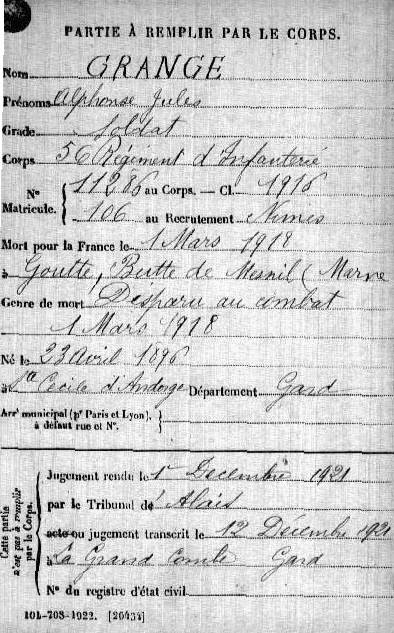 PARTIE À REMPLIR PAR LE CORPS.
Nom GRANGE
Prénoms Alphonse Jules
Grade Soldat
Corps 56 Régiment d'Infanterie
N° Matricule. { 11286 au Corps. — Cl. 1916
106 au Recrutement Nimes
Mort pour la France le 1 Mars 1918
à Goutte, Butte de Mesnil (Marne
Genre de mort Disparu au combat
1 Mars 1918
Né le 23 Avril 1896
à Ste Cecile d'Andorge Département Gard
Arrt municipal (pr Paris et Lyon), }
à défaut rue et N°.
Cette partie n'est pas à remplir par le Corps.
Jugement rendu le 1r Decembre 1921
par le Tribunal de Alais
acte ou jugement transcrit le 12 Décembre 1921
à La Grand Combe Gard
N° du registre d'état civil
101-708-1922. [26434]